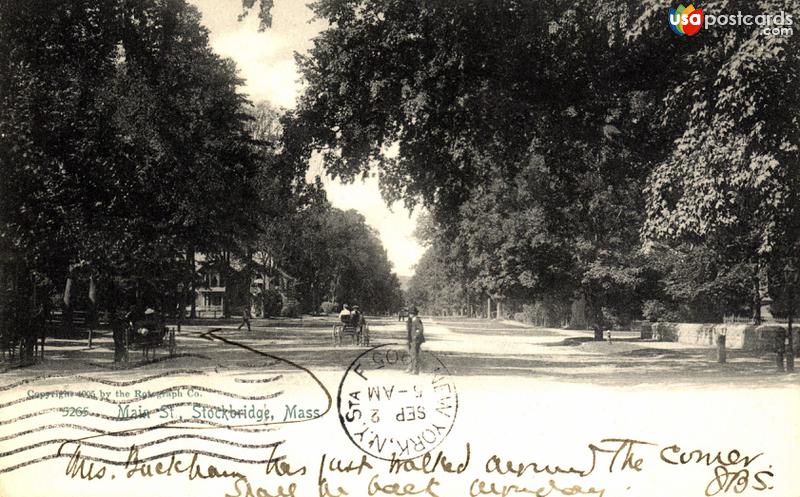 usapostcards
.com
Copyright 1905 by the Rotograph Co.
5265 Main St., Stockbridge, Mass
NEW YORK, N.Y.
STA F
SEP 2
5-AM
1905
Mrs. Buckham has just walked around the corner.
Shall be back Monday.